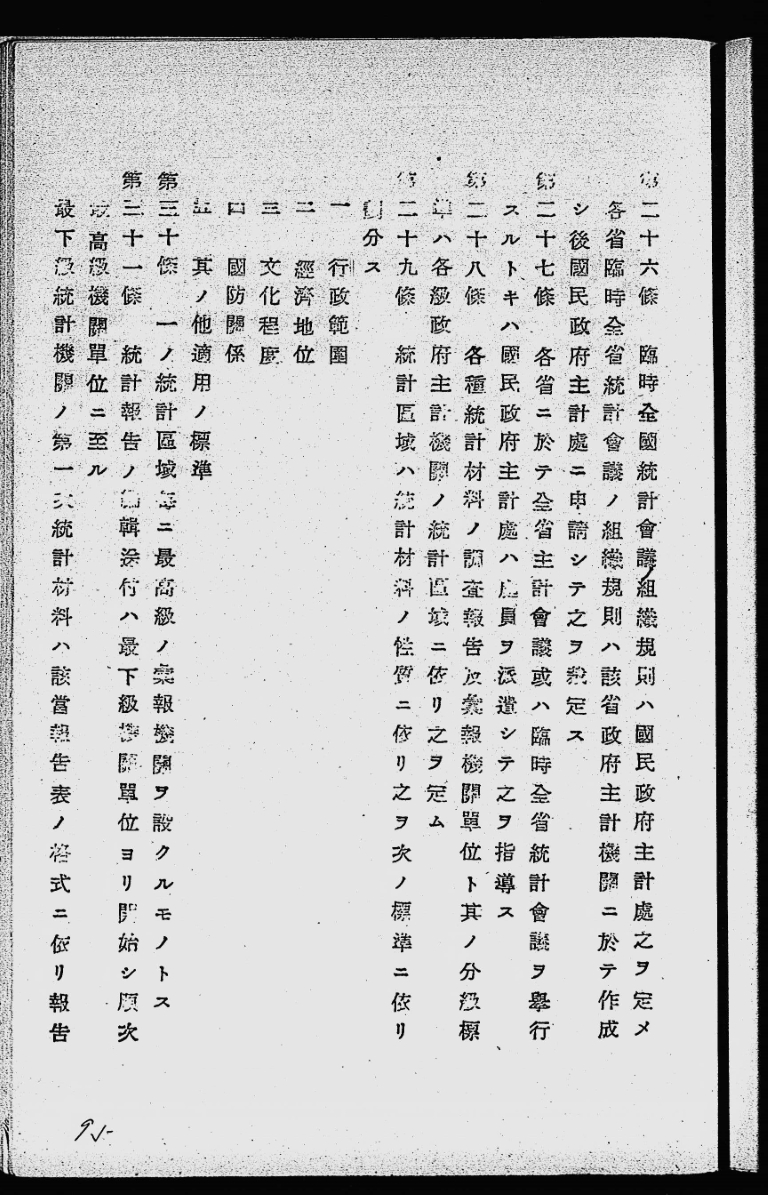 第二十六條　臨時全國統計會議ノ組織規則ハ國民政府主計處之ヲ定メ
各省臨時全省統計會議ノ組織規則ハ該省政府主計機關ニ於テ作成
シ後國民政府主計處ニ申請シテ之ヲ定ス
第二十七條　各省ニ於テ全省主計會議或ハ臨時全省統計會議ヲ擧行
スルトキハ國民政府主計處ハ員ヲ派遣シテ之ヲ指導ス
第二十八條　各種統計材料ノ調査報告及彙報機關單位ト其ノ分級標
準ハ各級政府主計機關ノ統計區域ニ依リ之ヲ定ム
第二十九條　統計區域ハ統計材料ノ性質ニ依リ之ヲ次ノ標準ニ依リ
劃分ス
一　行政範圍
二　經濟地位
三　文化程度
四　國防關係
五　其ノ他適用ノ標準
第三十條　一ノ統計區域每ニ最高級ノ彙報機關ヲ設クルモノトス
第三十一條　統計報告ノ編輯送付ハ最下級機關單位ヨリ開始シ順次
最高級機關單位ニ至ル
最下級統計機關ノ第一次統計材料ハ該當報告表ノ格式ニ依リ報告
95